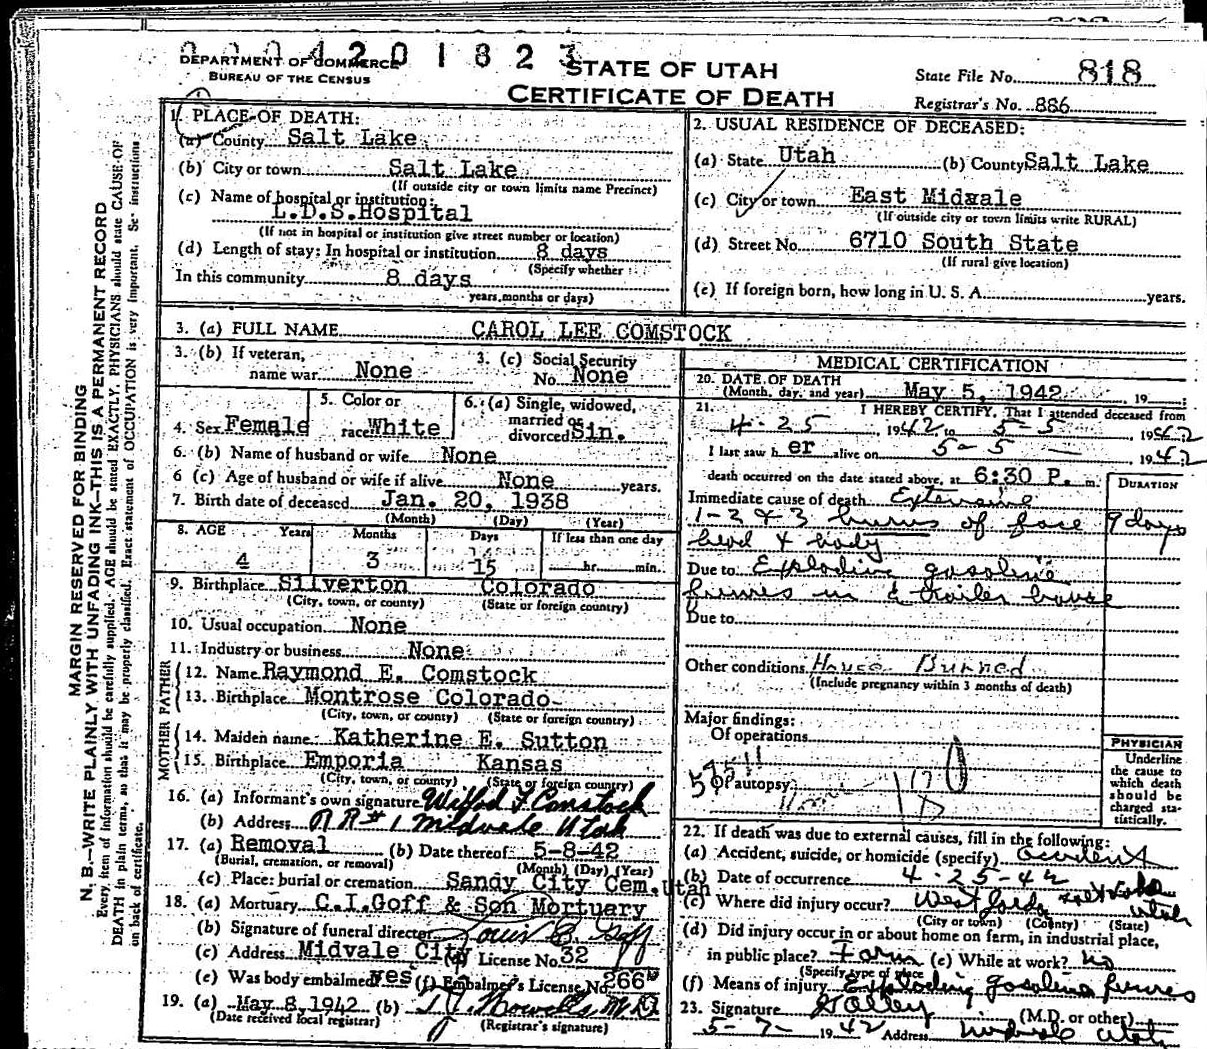 0004201823
DEPARTMENT OF COMMERCE
BUREAU OF THE CENSUS
STATE OF UTAH
CERTIFICATE OF DEATH
State File No. 818
Registrar's No. 886
MARGIN RESERVED FOR BINDING
N. B.—WRITE PLAINLY WITH UNFADING INK—THIS IS A PERMANENT RECORD
Every item of information should be carefully supplied. AGE should be stated EXACTLY. PHYSICIANS should state CAUSE OF
DEATH in plain terms, so that it may be properly classified. Exact statement of OCCUPATION is very important. See instructions
on back of certificate.
1. PLACE OF DEATH:
(a) County Salt Lake
(b) City or town Salt Lake
(If outside city or town limits name Precinct)
(c) Name of hospital or institution:
L.D.S.Hospital
(If not in hospital or institution give street number or location)
(d) Length of stay: In hospital or institution 8 days
(Specify whether
In this community 8 days
years, months or days)
2. USUAL RESIDENCE OF DECEASED:
(a) State Utah (b) County Salt Lake
(c) City or town East Midvale
(If outside city or town limits write RURAL)
(d) Street No. 6710 South State
(If rural give location)
(e) If foreign born, how long in U. S. A. years.
3. (a) FULL NAME CAROL LEE COMSTOCK
3. (b) If veteran, name war None
3. (c) Social Security No. None
4. Sex Female
5. Color or race White
6. (a) Single, widowed, married or divorced Sin.
6. (b) Name of husband or wife None
6 (c) Age of husband or wife if alive None years.
7. Birth date of deceased Jan. 20, 1938
(Month) (Day) (Year)
8. AGE Years Months Days If less than one day
4 3 15 hr. min.
9. Birthplace Silverton Colorado
(City, town, or county) (State or foreign country)
10. Usual occupation None
11. Industry or business None
FATHER
12. Name Raymond E. Comstock
13. Birthplace Montrose Colorado
(City, town, or county) (State or foreign country)
MOTHER
14. Maiden name Katherine E. Sutton
15. Birthplace Emporia Kansas
(City, town, or county) (State or foreign country)
16. (a) Informant's own signature Comstock
(b) Address RR#1 Midvale Utah
17. (a) Removal (b) Date thereof 5-8-42
(Burial, cremation, or removal) (Month) (Day) (Year)
(c) Place: burial or cremation Sandy City Cem. Utah
18. (a) Mortuary C.I.Goff & Son Mortuary
(b) Signature of funeral director Louis E. Goff
(c) Address Midvale City (d) License No. 32
(e) Was body embalmed yes (f) Embalmer's License No. 266
19. (a) May 8, 1942 (b) M.D.
(Date received local registrar) (Registrar's signature)
MEDICAL CERTIFICATION
20. DATE OF DEATH
(Month, day, and year) May 5, 1942 , 19 ;
21. I HEREBY CERTIFY, That I attended deceased from
4-25 1942 to 5-5 1942
I last saw h er alive on 5-5 1942
death occurred on the date stated above, at 6:30 P. m.
DURATION
Immediate cause of death Extensive
1-2 & 3 burns of face 9 days
head & body
Due to Exploding gasoline
fumes in a trailer house
Due to
Other conditions House Burned
(Include pregnancy within 3 months of death)
Major findings:
Of operations
Of autopsy
PHYSICIAN
Underline the cause to which death should be charged statistically.
22. If death was due to external causes, fill in the following:
(a) Accident, suicide, or homicide (specify) Accident
(b) Date of occurrence 4-25-42
(c) Where did injury occur? West Jordan Salt Lake Utah
(City or town) (County) (State)
(d) Did injury occur in or about home on farm, in industrial place,
in public place? Farm (e) While at work? No
(Specify type of place)
(f) Means of injury Exploding gasoline fumes
23. Signature (M.D. or other)
5-7- 1942 Address Midvale Utah